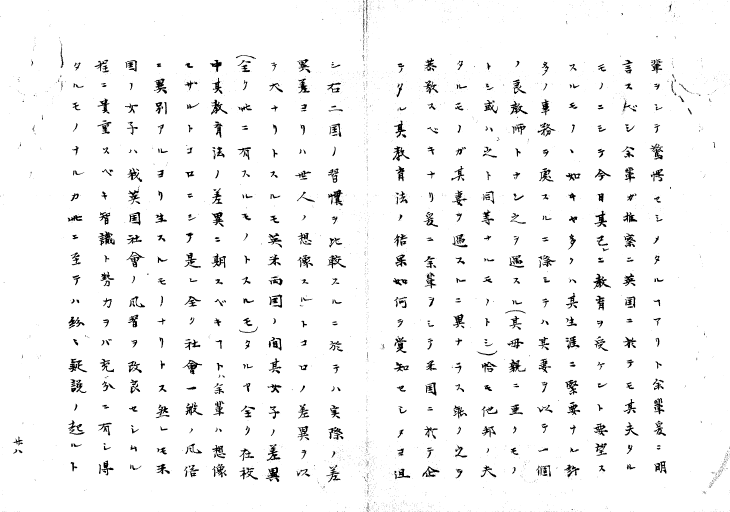 輩ヲシテ驚愕セシメタルヿアリト余輩爰ニ明
言スベシ余輩ガ推察ニ英国ニ於テモ其夫タル
モノニシテ今日真已ニ教育ヲ受ケント要望ス
スルモノヽ如キヤ多クハ其生涯ニ緊要ナル許
多ノ事務ヲ處スルニ際シテハ其妻ヲ以テ一個
ノ良教師トナシ之ヲ過スル(其母親ニ亜クモノ
トシ或ハ之ト同等ナルモノトシ)恰モ他邦ノ夫
タルモノガ其妻ヲ過スルニ異ナラス能ノ之ヲ
恭敬スベキナリ爰ニ余輩ヲシテ米国ニ於テ企
テタル其教育法ノ結果如何ヲ賞知セシメヨ且
シ右二国ノ習慣ヲ比較スルニ於テハ実際ノ差
異差ヨリハ世人ノ想像スルトコロノ差異ヲ以
テ大ナリトスルモ英米両国ノ間其女子ノ差異
(全ク此ニ有スルモノトスルモ)タルヤ全ク在校
中其教育法ノ差異ニ期スベキヿトハ余輩ハ想像
セサルトコロニシテ是レ全ク社會一般ノ風俗
ニ異別アルヨリ生スルモノナリトス然レモ米
国ノ女子ハ我英国社會ノ風習ヲ改良セシムル
程ニ貴重スベキ智識ト勢力ヲバ充分ニ有シ得
タルモノナルカ此ニ至テハ紛々疑説ノ起ルト
廿八